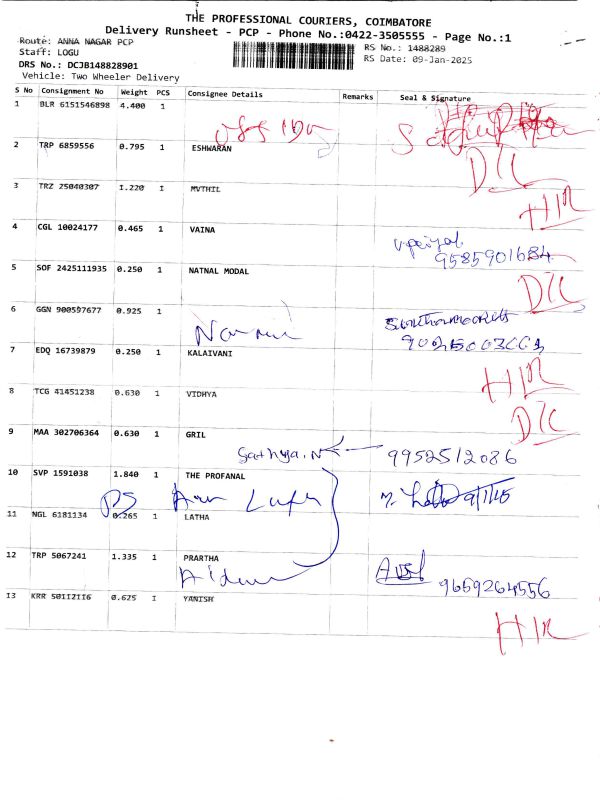 THE PROFESSIONAL COURIERS, COIMBATORE
Delivery Runsheet - PCP - Phone No.:0422-3505555 - Page No.:1
Route: ANNA NAGAR PCP
Staff: LOGU
DRS No.: DCJB148828901
Vehicle: Two Wheeler Delivery
RS No.: 1488289
RS Date: 09-Jan-2025
S No Consignment No Weight PCS Consignee Details Remarks Seal & Signature
1 BLR 6151546898 4.400 1
2 TRP 6859556 0.795 1 ESHWARAN
D/L
3 TRZ 25040307 1.220 1 MVTHIL
HIR
4 CGL 10024177 0.465 1 VAINA
9585901684
5 SOF 2425111935 0.250 1 NATNAL MODAL
D/L
6 GGN 900597677 0.925 1
7 EDQ 16739879 0.250 1 KALAIVANI
HIR
8 TCG 41451238 0.630 1 VIDHYA
D/L
9 MAA 302706364 0.630 1 GRIL
Sathya.N 9952512086
10 SVP 1591038 1.840 1 THE PROFANAL
9/1/25
11 NGL 6181134 0.265 1 LATHA
12 TRP 5067241 1.335 1 PRARTHA
9659264556
13 KRR 50112116 0.625 1 YANISH
HIR